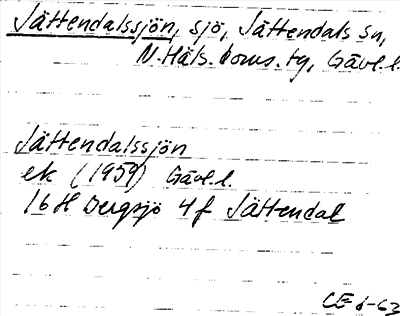 Jättendalssjön, sjö, Jättendals sn,
N. Häls. doms. tg, Gävl. l.
Jättendalssjön
ek (1959) Gävl. l.
16 H Bergsjö 4f Jättendal
CE 6-63